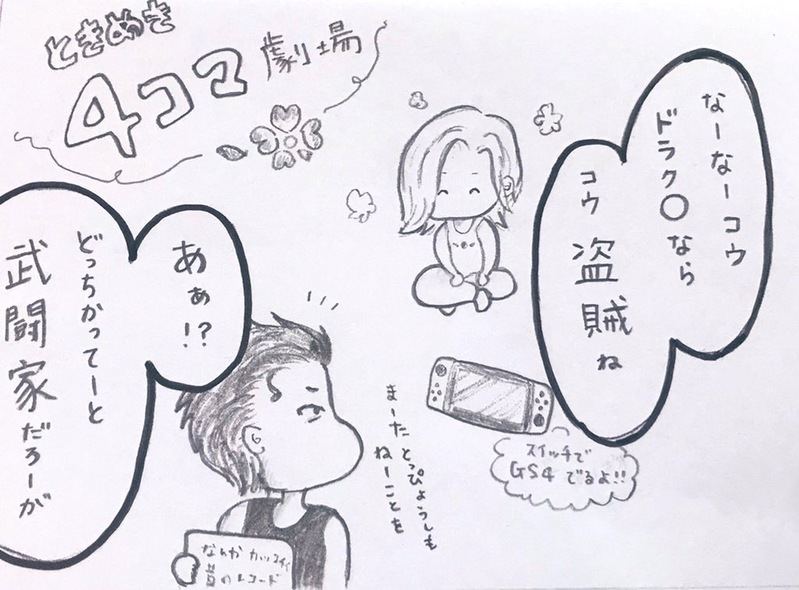 ときめき
4コマ劇場
なーなーコウ
ドラク○なら
コウ 盗賊ね
あぁ!?
どっちかってーと
武闘家だろーが
まーた とっぴょうしも
ねーことを
スイッチで
GS4 でるよ!!
なんか カッコイイ
昔のレコード